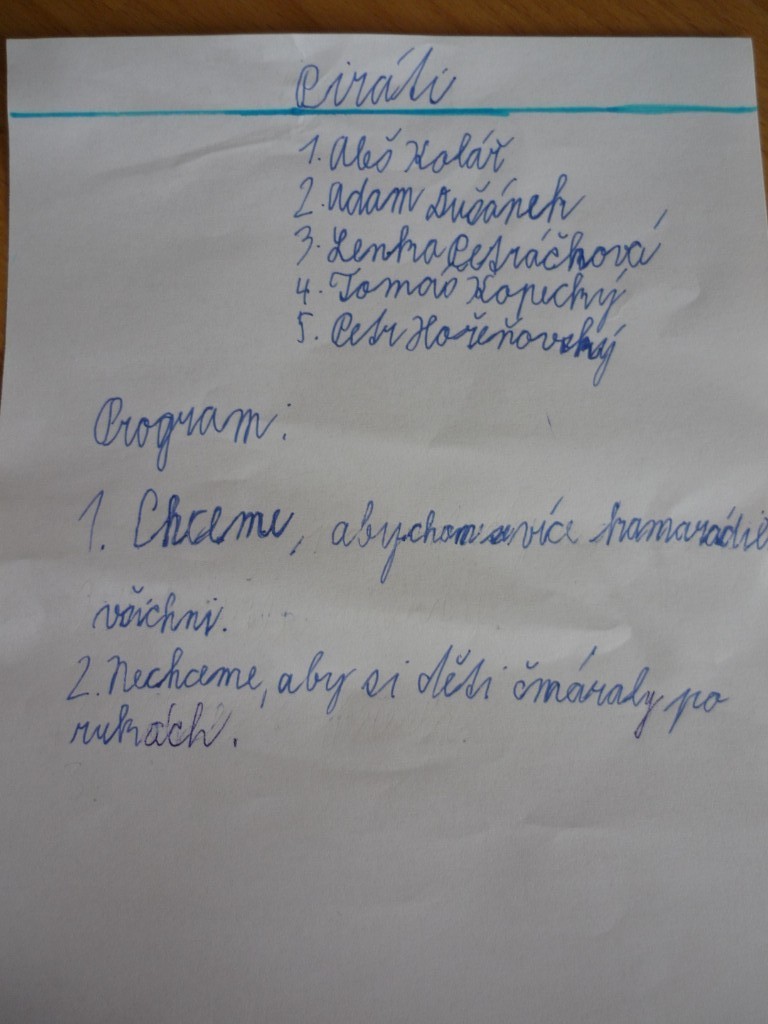 Piráti
1. Aleš Kolář
2. Adam Dušánek
3. Lenka Petráčková
4. Tomáš Kopecký
5. Petr Hořeňovský
Program:
1. Chceme, abychom více kamarádili
všichni.
2. Nechceme, aby si děti čmáraly po
rukách.